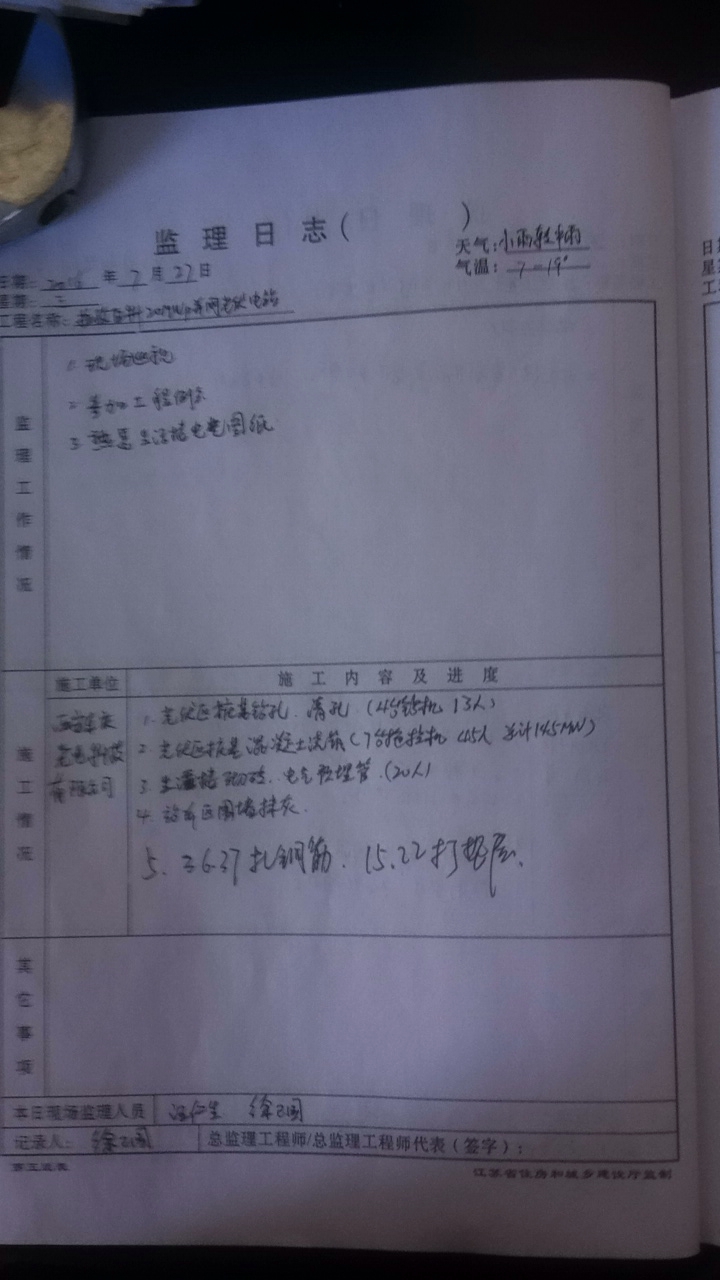 监 理 日 志 ( )
天气: 小雨转中雨
气温: 7-19°
日期: 2016 年 7 月 27 日
星期: 三
工程名称: 20MWp并网光伏电站
监理工作情况
1. 现场巡视
2. 参加工程例会
3. 熟悉生活楼电气图纸
施工单位
施 工 内 容 及 进 度
施工情况
有限公司
1. 光伏区桩基钻孔、清孔(4台钻机 13人)
2. 光伏区桩基混凝土浇筑(7台拖拉机 45人 总计14.5MW)
3. 生活楼砌砖、电气预埋管(20人)
4. 站前区围墙抹灰.
5. 36.37扎钢筋. 15.22打垫层.
其它事项
本日现场监理人员
记录人:
总监理工程师/总监理工程师代表(签字):
江苏省住房和城乡建设厅监制
日
星
工